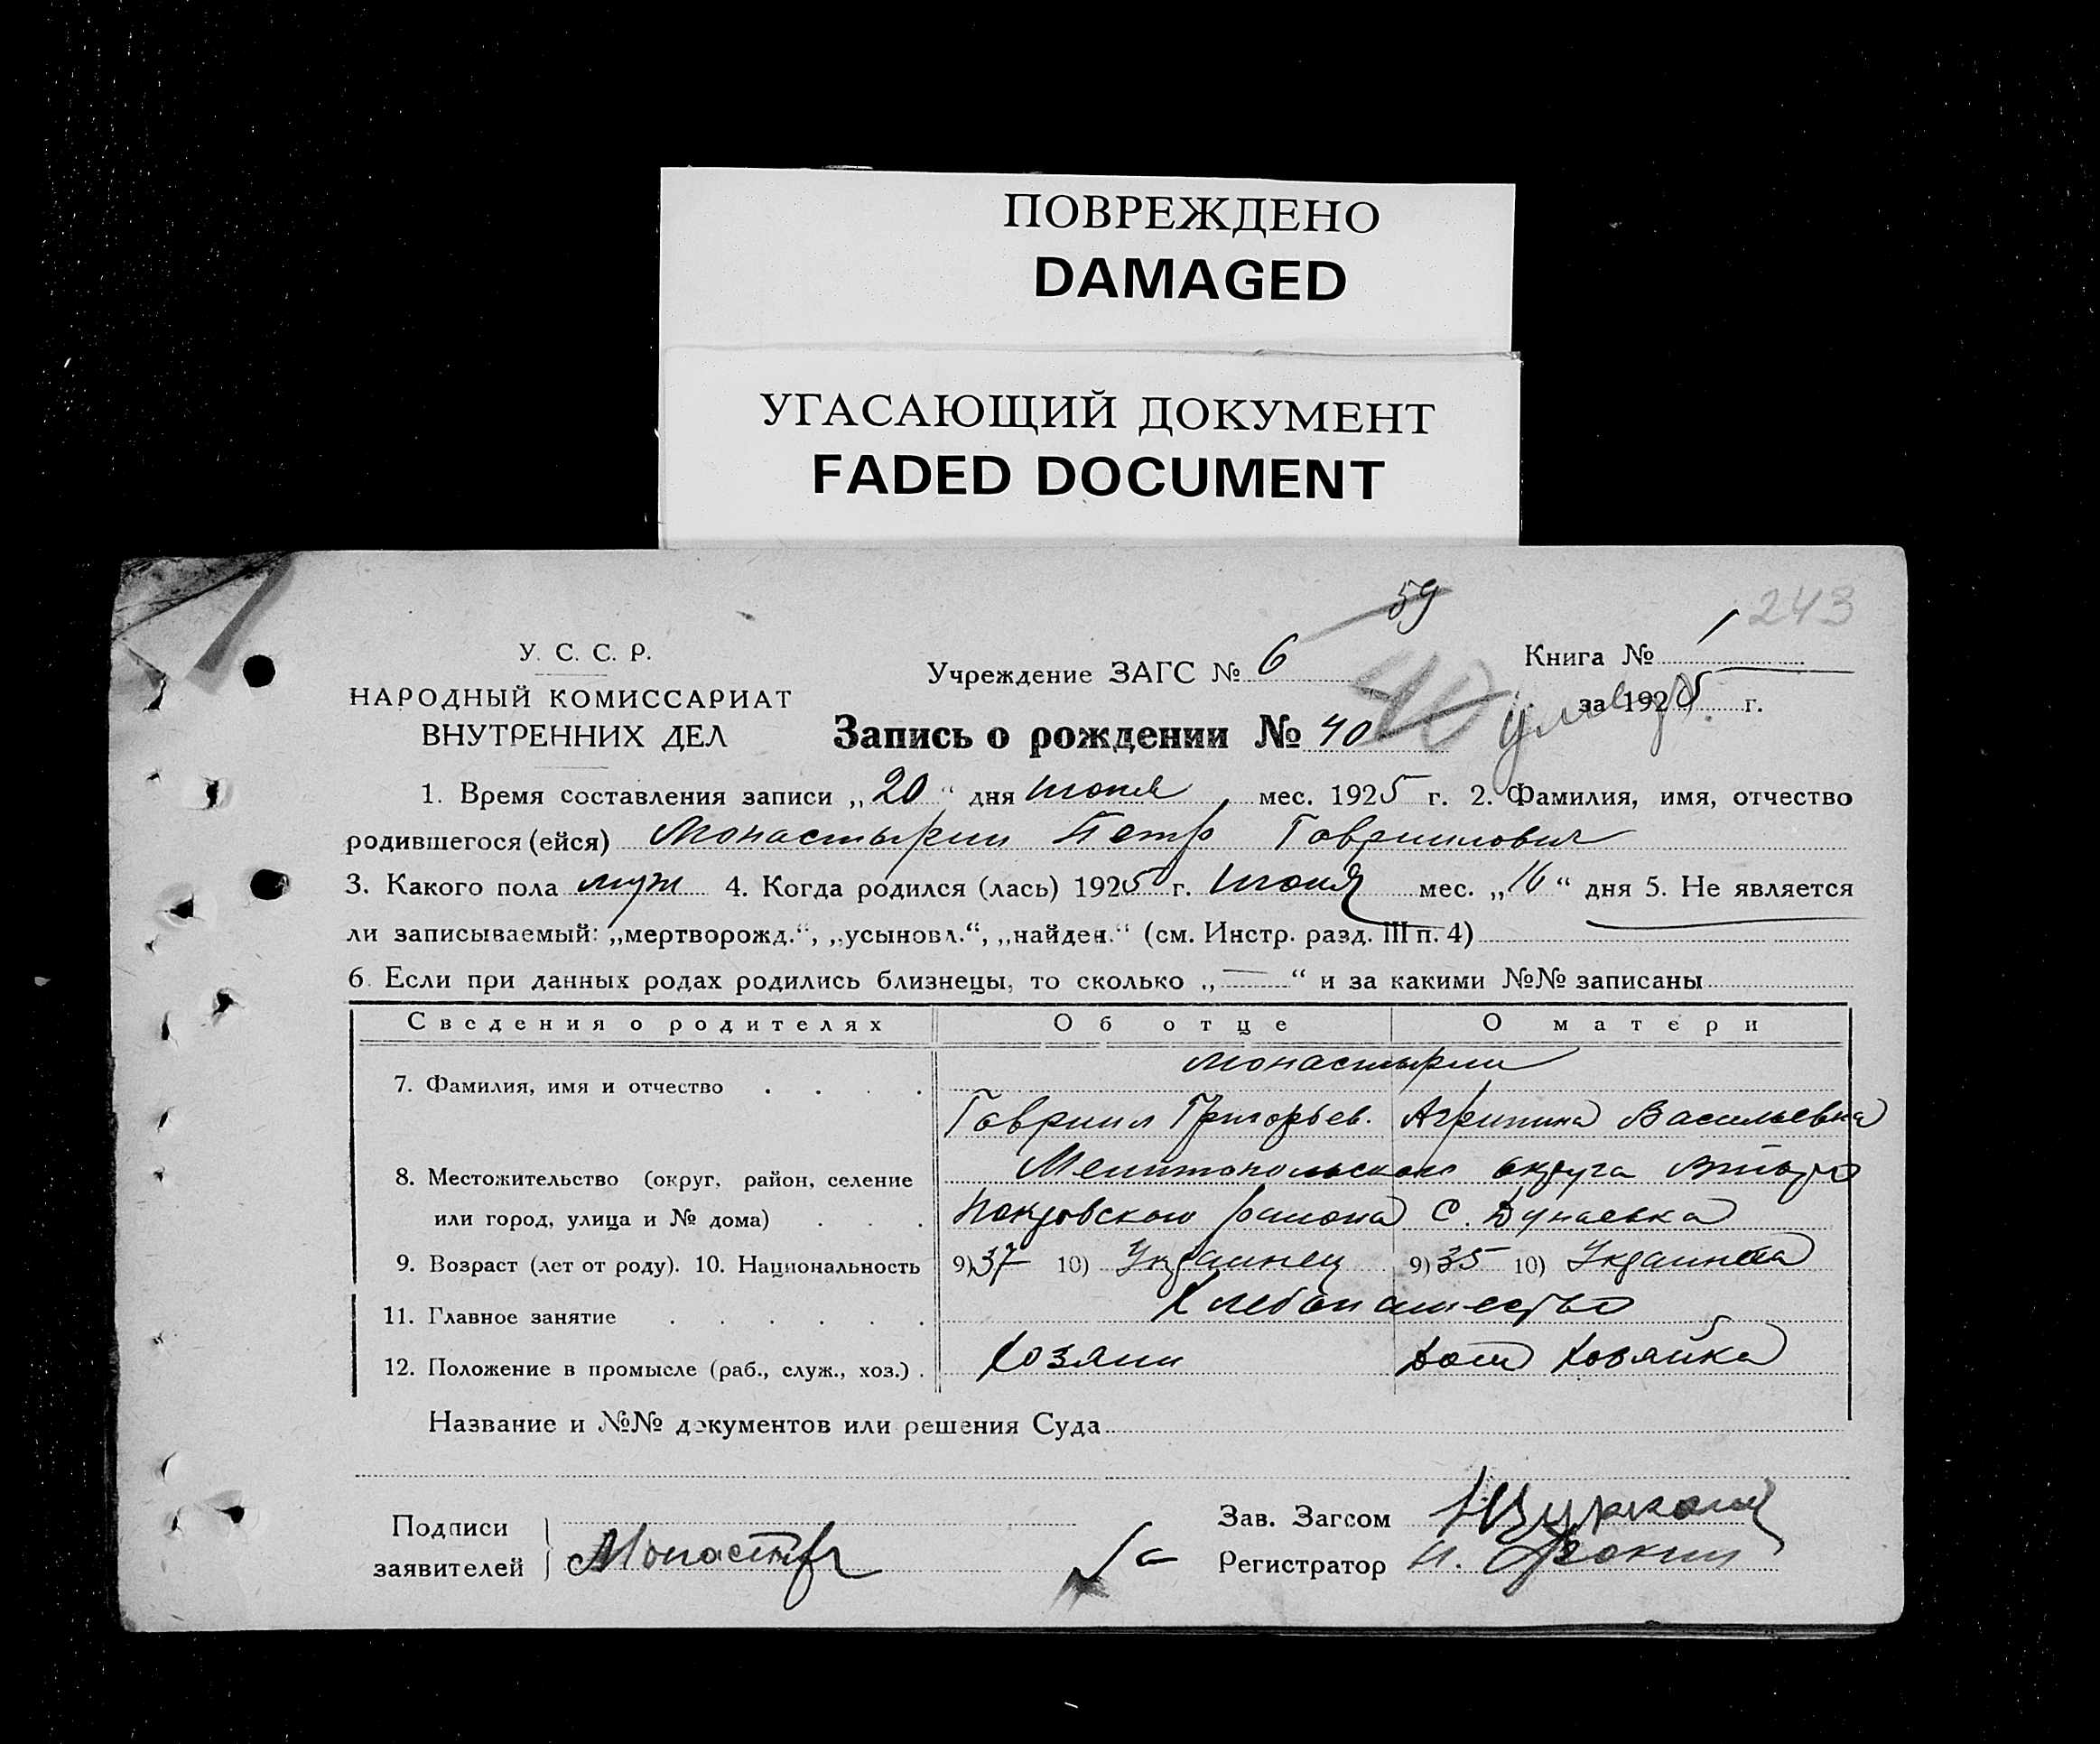 ПОВРЕЖДЕНО
DAMAGED
УГАСАЮЩИЙ ДОКУМЕНТ
FADED DOCUMENT
59
243
У. С. С. Р.
НАРОДНЫЙ КОМИССАРИАТ
ВНУТРЕННИХ ДЕЛ
Учреждение ЗАГС № 6
Книга № 1
за 1925 г.
40
Запись о рождении № 40
1. Время составления записи „20“ дня июня мес. 1925 г. 2. Фамилия, имя, отчество
родившегося (ейся) Монастырин Петр Гавриилович
3. Какого пола муж 4. Когда родился (лась) 1925 г. июня мес. „16“ дня 5. Не является
ли записываемый: „мертворожд.“, „усыновл.“, „найден.“ (см. Инстр. разд. III п. 4)
6. Если при данных родах родились близнецы, то сколько „—“ и за какими №№ записаны
Сведения о родителях Об отце О матери
7. Фамилия, имя и отчество Монастырин
Гавриил Григорьев. Агрипина Васильевна
8. Местожительство (округ, район, селение Мелитопольского округа
или город, улица и № дома) Покровского района с. Дунаевка
9. Возраст (лет от роду). 10. Национальность 9) 37 10) Украинец 9) 35 10) Украинка
11. Главное занятие Хлебопашество
12. Положение в промысле (раб., служ., хоз.) Хозяин Дом Хозяйка
Название и №№ документов или решения Суда
Подписи
заявителей Монастыр
Зав. Загсом
Регистратор